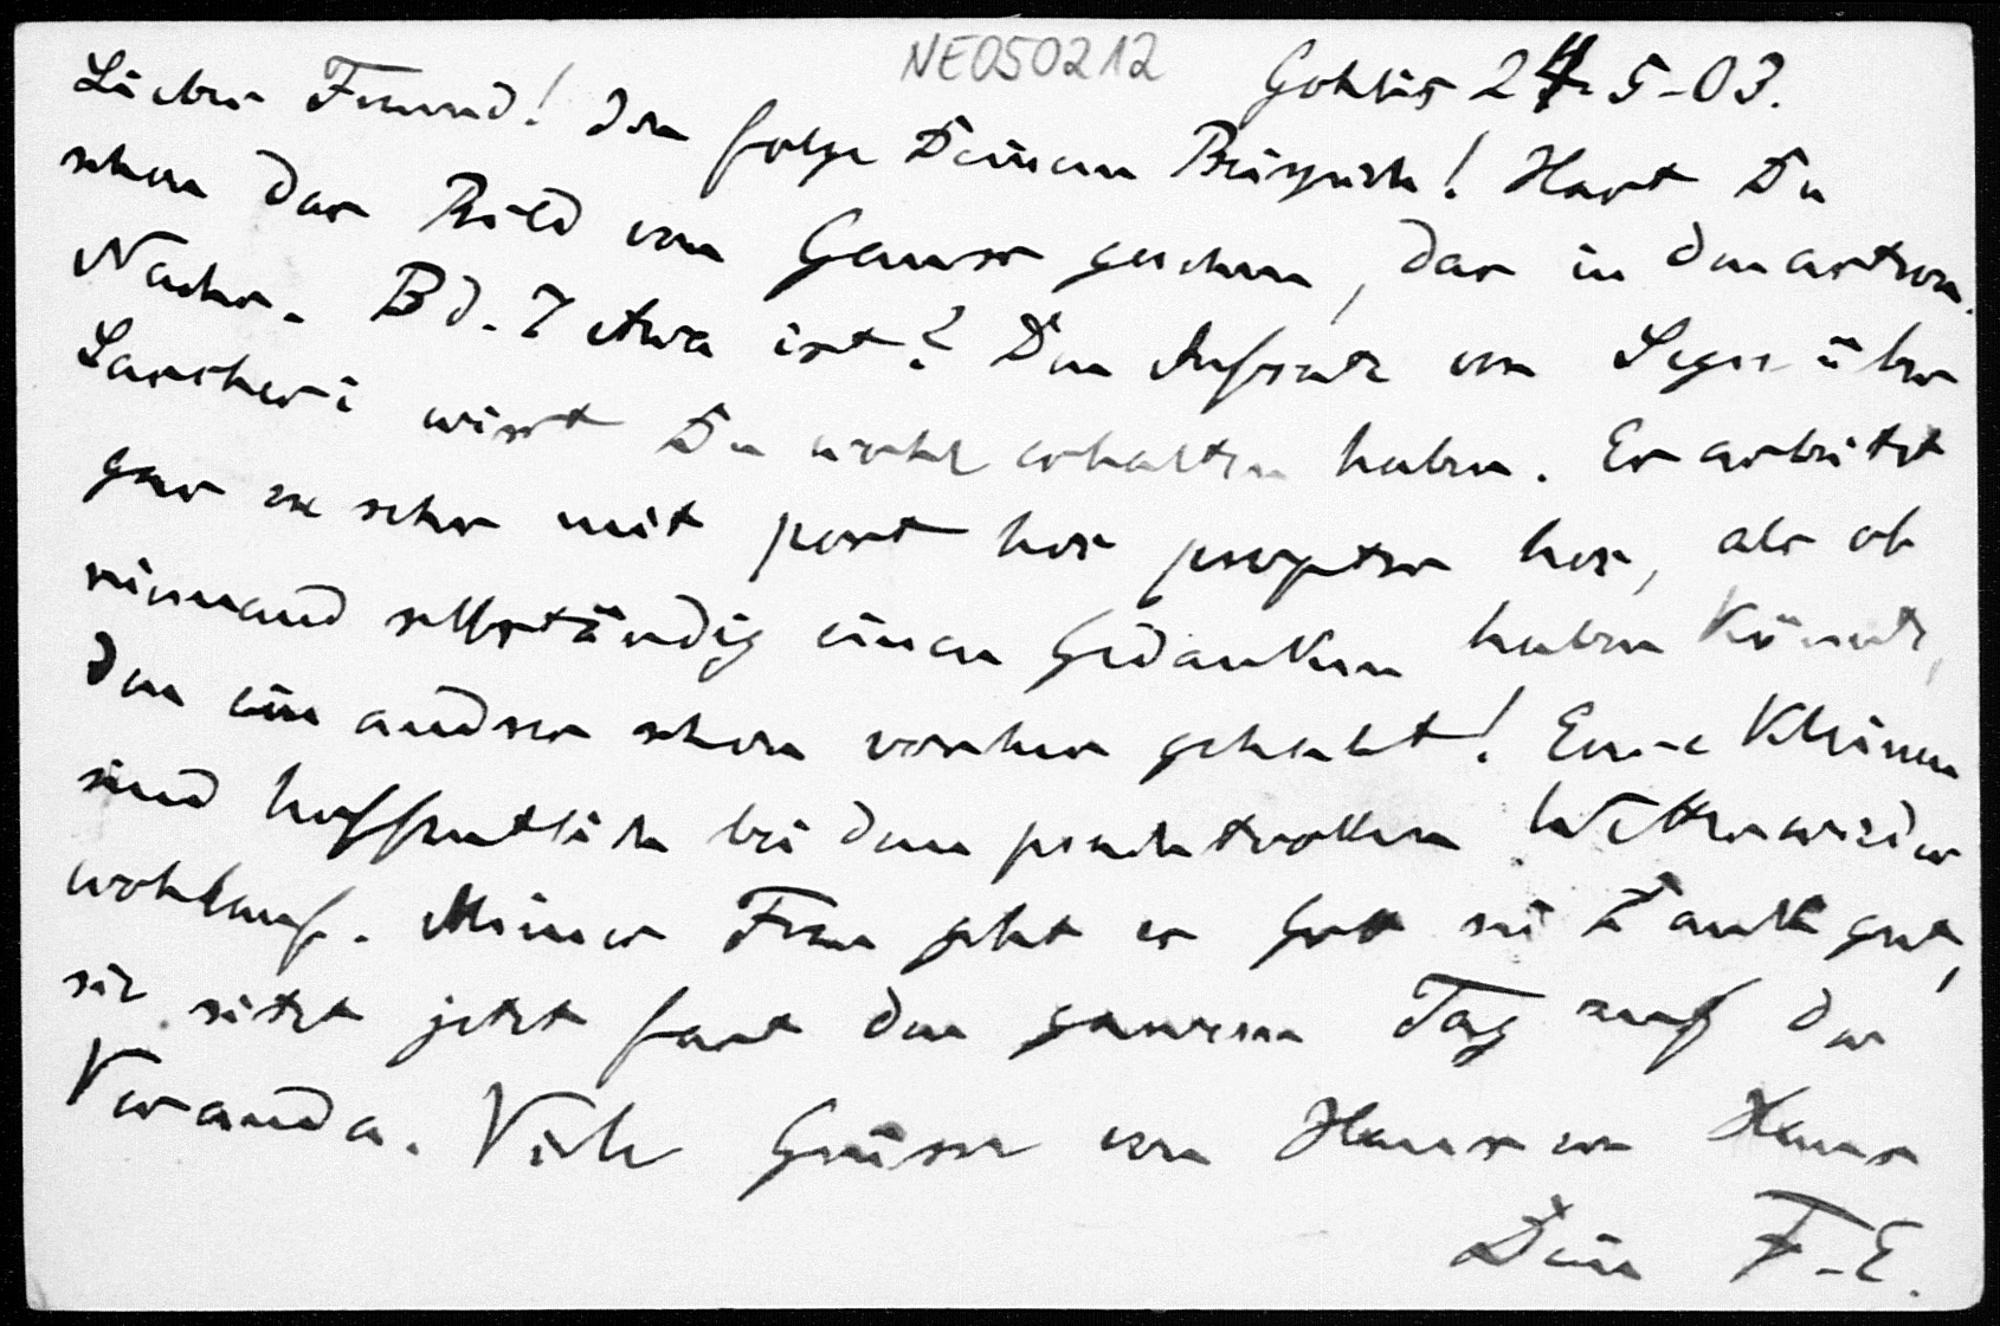 NE050212
Gohlis 24-5-03.
Lieber Freund! Ich folge Deinem Beispiele! Hast Du
schon das Bild von Gauss gesehen, das in den astron.
Nachr. Bd. 7 etwa ist? Den Aufsatz von Segre über
Saccheri wirst Du wohl erhalten haben. Er arbeitet
gar zu sehr mit post hoc propter hoc, als ob
niemand selbständig einen Gedanken haben könnte,
den ein andrer schon vorher gehabt! Eure Kleinen
sind hoffentlich bei dem prachtvollen Wetter wieder
wohlauf. Meiner Frau geht es Gott sei Dank gut,
sie sitzt jetzt fast den ganzen Tag auf der
Veranda. Viele Grüsse von Haus zu Haus
Dein F. E.